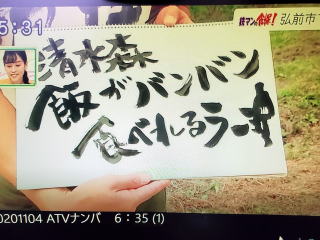 5:31
鉄マンの食探! 弘前市
清水森
飯がバンバン
食べれるラー油
20201104 ATVナンバ 6:35 (1)